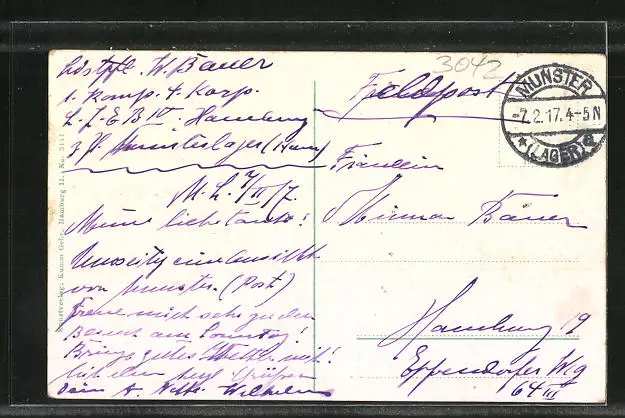 W. Bauer
1. Komp. 4. Korp.
L-J-E-B IV. Hamburg
z. Zt. Munsterlager (Hann)
M. L. 7/II 17.
Meine liebe Tante!
Umseitig eine Ansicht
von Munster. (Post)
Freue mich sehr zu den
Besuch am Sonntag!
Bringe gutes Wetter mit!
Dein A. Neffe Wilhelm
Kunstverlag: Kumm Gebr. Hamburg 11. No.
3042
Feldpost
MUNSTER
-7.2.17.4-5N
*(LAGER)a
Fräulein
Bauer
Hamburg 19
Eppendorfer Weg
64 III